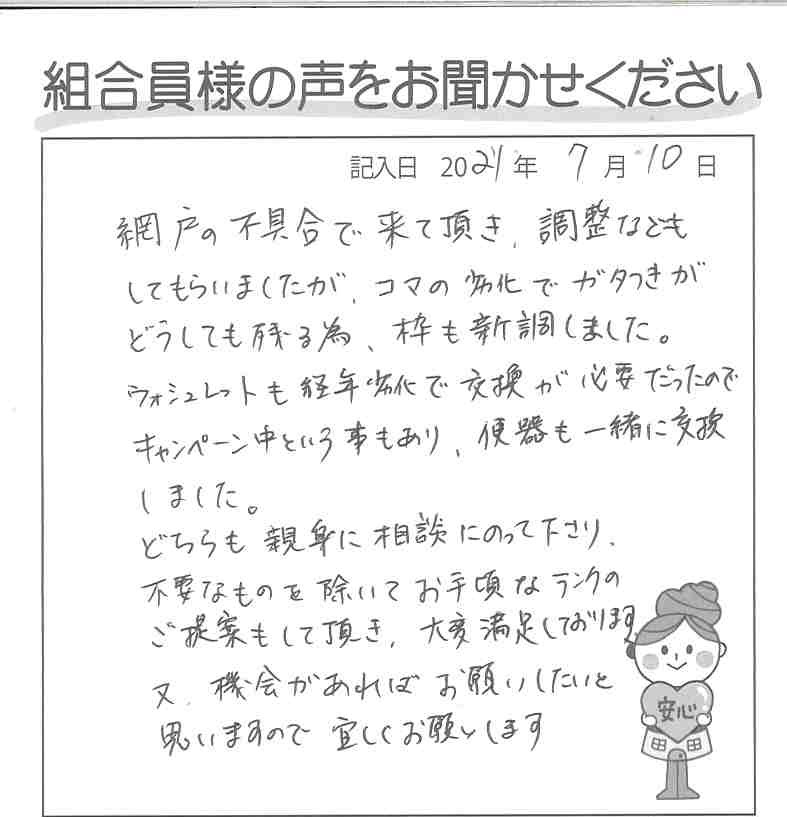 組合員様の声をお聞かせください
記入日 2021年 7月10日
網戸の不具合で来て頂き、調整なども
してもらいましたが、コマの劣化でガタつきが
どうしても残る為、枠も新調しました。
ウォシュレットも経年劣化で交換が必要だったので
キャンペーン中という事もあり、便器も一緒に交換
しました。
どちらも親身に相談にのって下さり、
不要なものを除いてお手頃なランクの
ご提案もして頂き、大変満足しております。
又、機会があればお願いしたいと
思いますので宜しくお願いします
安心